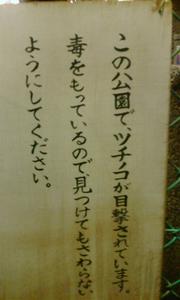 この公園で、ツチノコが目撃されています。
毒をもっているので、見つけてもさわらない
ようにしてください。